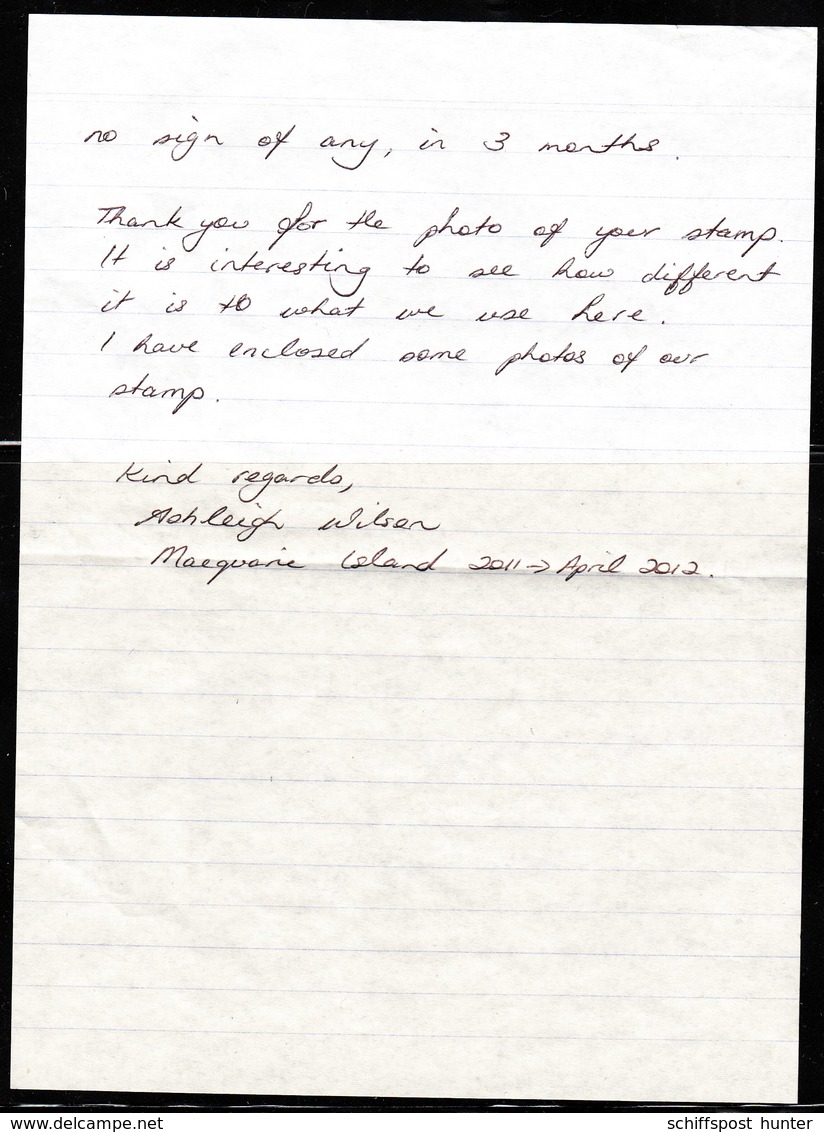 no sign of any, in 3 months.
Thank you for the photo of your stamp.
It is interesting to see how different
it is to what we use here.
I have enclosed some photos of our
stamp.
Kind regards,
Ashleigh Wilson
Macquarie Island 2011 → April 2012.
www.delcampe.net
schiffspost hunter